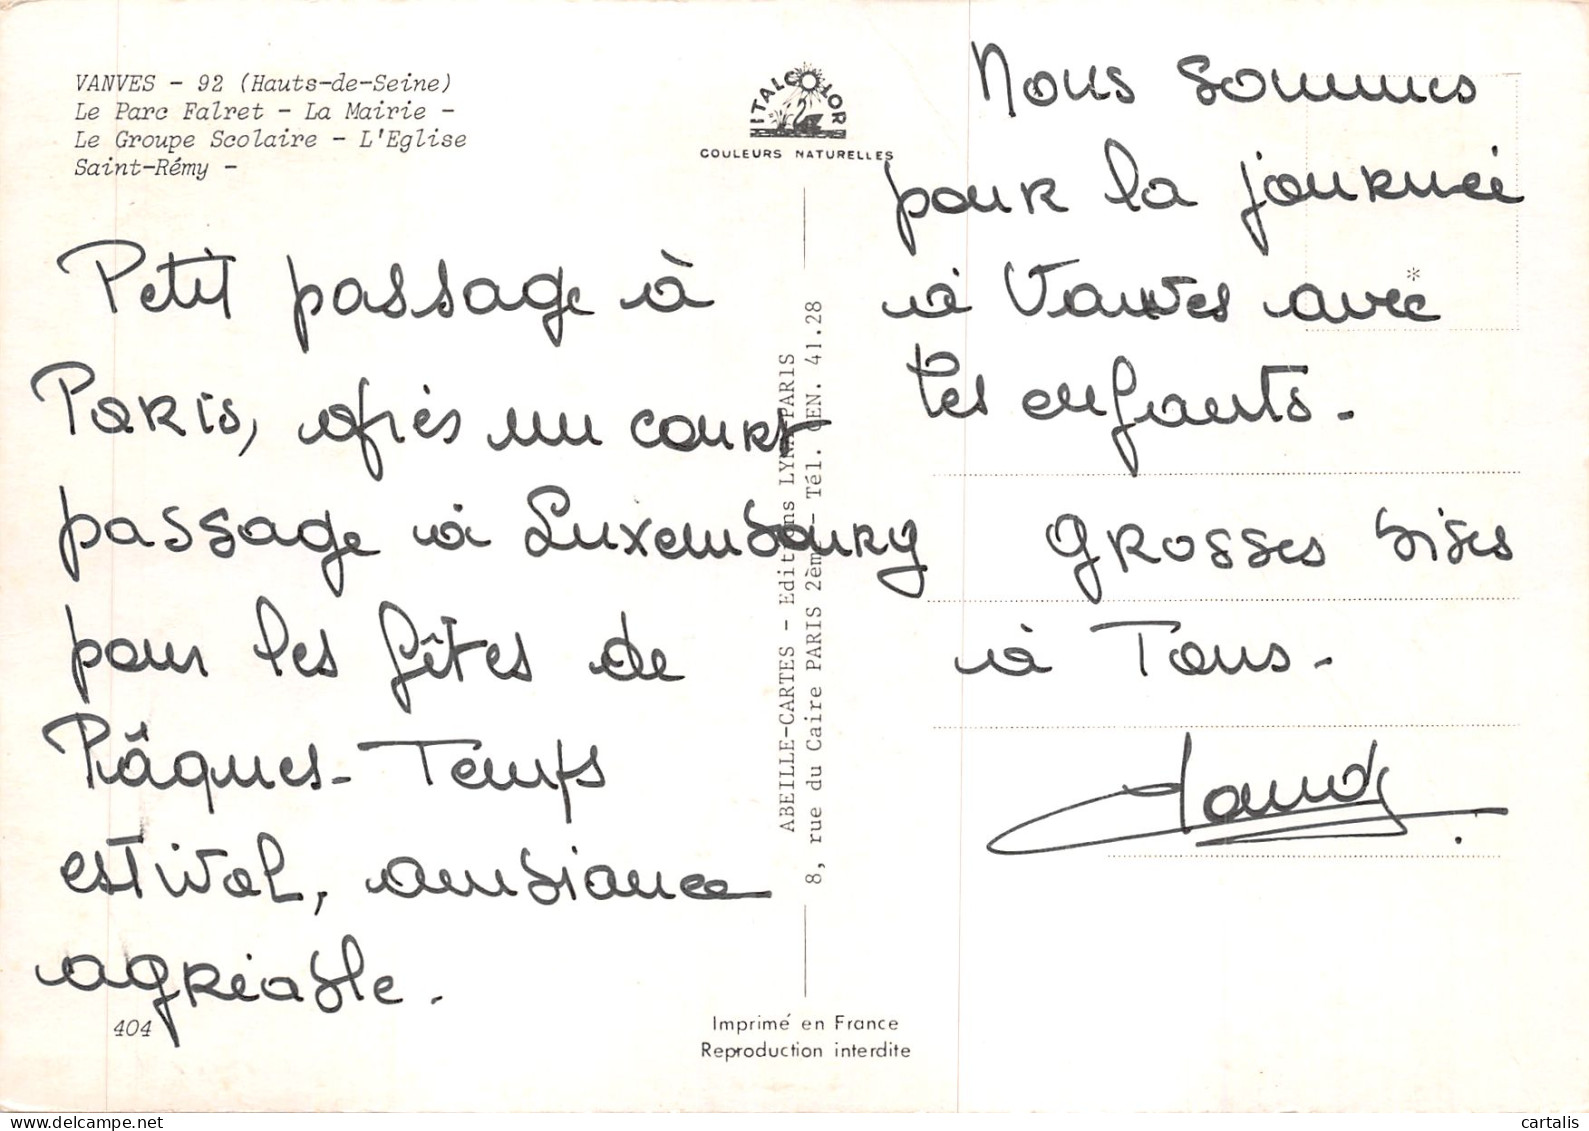 VANVES - 92 (Hauts-de-Seine)
Le Parc Falret - La Mairie -
Le Groupe Scolaire - L'Eglise
Saint-Rémy -
ITALCOLOR
COULEURS NATURELLES
Petit passage à
Paris, après un court
passage à Luxembourg
pour les fêtes de
Pâques - Temps
estival, ambiance
agréable.
404
ABEILLE-CARTES - Editions LYNA PARIS
8, rue du Caire PARIS 2ème - Tél. CEN. 41.28
Imprimé en France
Reproduction interdite
Nous sommes
pour la journée
à Vanves avec
les enfants.
*
Grosses bises
à Tous -
cartalis.com